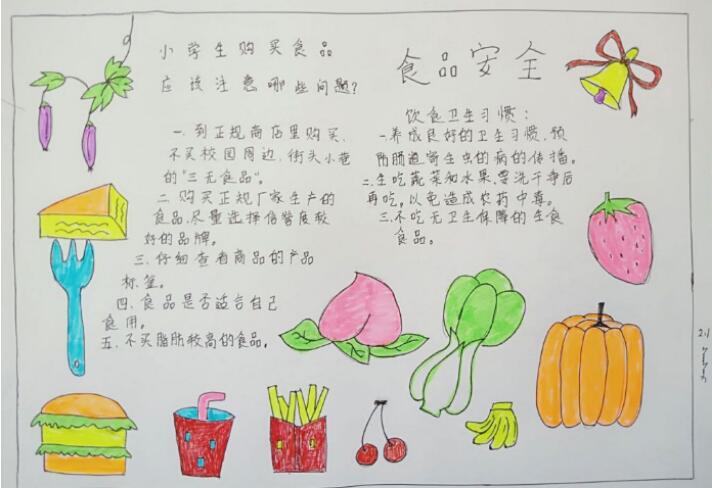 食品安全
小学生购买食品
应该注意哪些问题?
一.到正规商店里购买,
不买校园周边,街头小巷
的"三无食品"。
二.购买正规厂家生产的
食品,尽量选择信誉度较
好的品牌。
三.仔细查看商品的产品
标签。
四.食品是否适合自己
食用。
五.不买脂肪较高的食品。
饮食卫生习惯:
一.养成良好的卫生习惯,预
防肠道寄生虫的病的传播。
二.生吃蔬菜和水果,要洗干净后
再吃,以免造成农药中毒。
三.不吃无卫生保障的生食
食品。